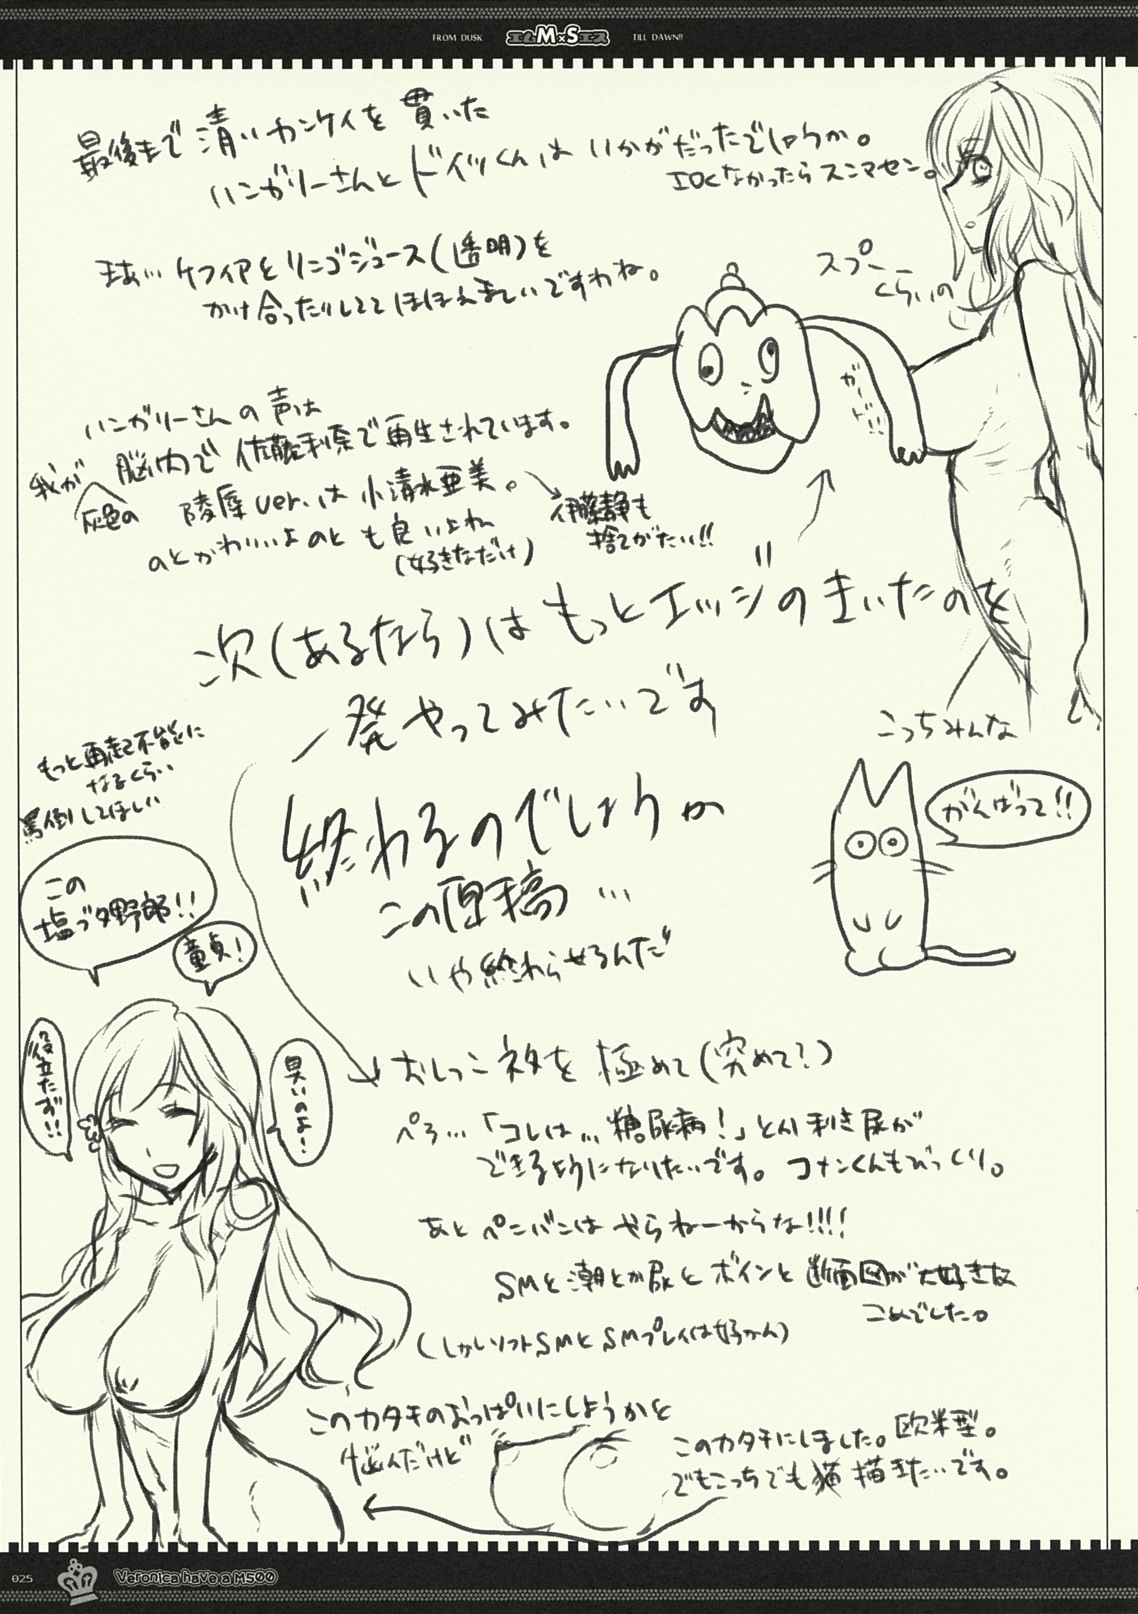 FROM DUSK
エムM×Sエス
TILL DAWN!!
最後まで清いカンケイを貫いた
ハンガリーさんとドイツくんはいかがだったでしょうか。
エロくなかったらスンマセン。
まあ…ケフィアとリンゴジュース(透明)を
かけ合ったりしててほほえましいですわね。
スプー
くらいの
ガード
ハンガリーさんの声は
我が脳内で佐藤利奈で再生されています。
灰色の
陵辱ver.は小清水亜美。
伊藤静も
捨てがたい!!
のとかわいいよのとも良いよね
(好きなだけ)
次(あるなら)はもっとエッジのきいたのを
一発やってみたいです
こっちみんな
がんばって!!
もっと再起不能に
なるくらい
罵倒してほしい
終わるのでしょうか
この原稿…
いや終わらせるんだ
この
塩ブタ野郎!!
童貞!
役立たず!!
臭いのよ!
おしっこネタを極めて(究めて?)
ペろ…「コレは…糖尿病!」とか利き尿が
できるようになりたいです。コナンくんもびっくり。
あとペニバンはやらねーからな!!!!
SMと潮とか尿とボインと断面図が大好きな
こめでした。
(しかしソフトSMとSMプレイは好かん)
このカタチのおっぱいにしようかと
悩んだけど
このカタチにしました。欧米型。
でもこっちでも猫描きたいです。
025
Veronica have a M500